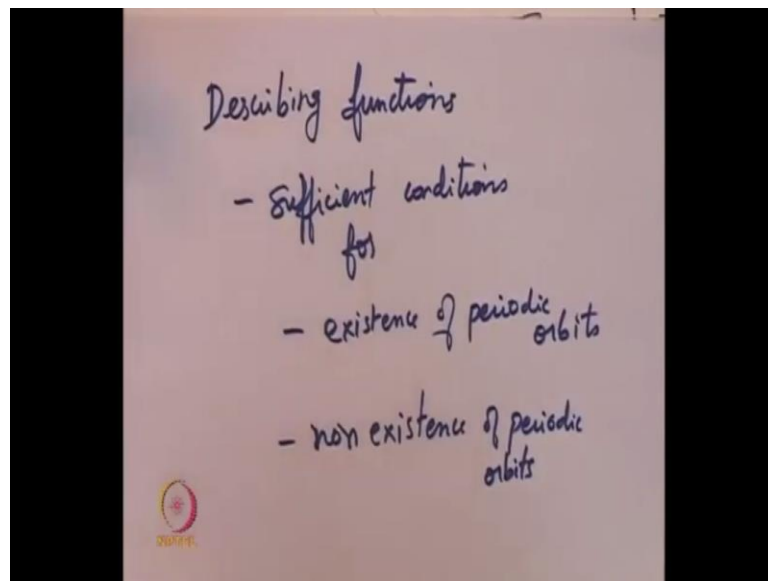 Describing functions
- Sufficient conditions
for
- existence of periodic
orbits
- non existence of periodic
orbits
NPTEL